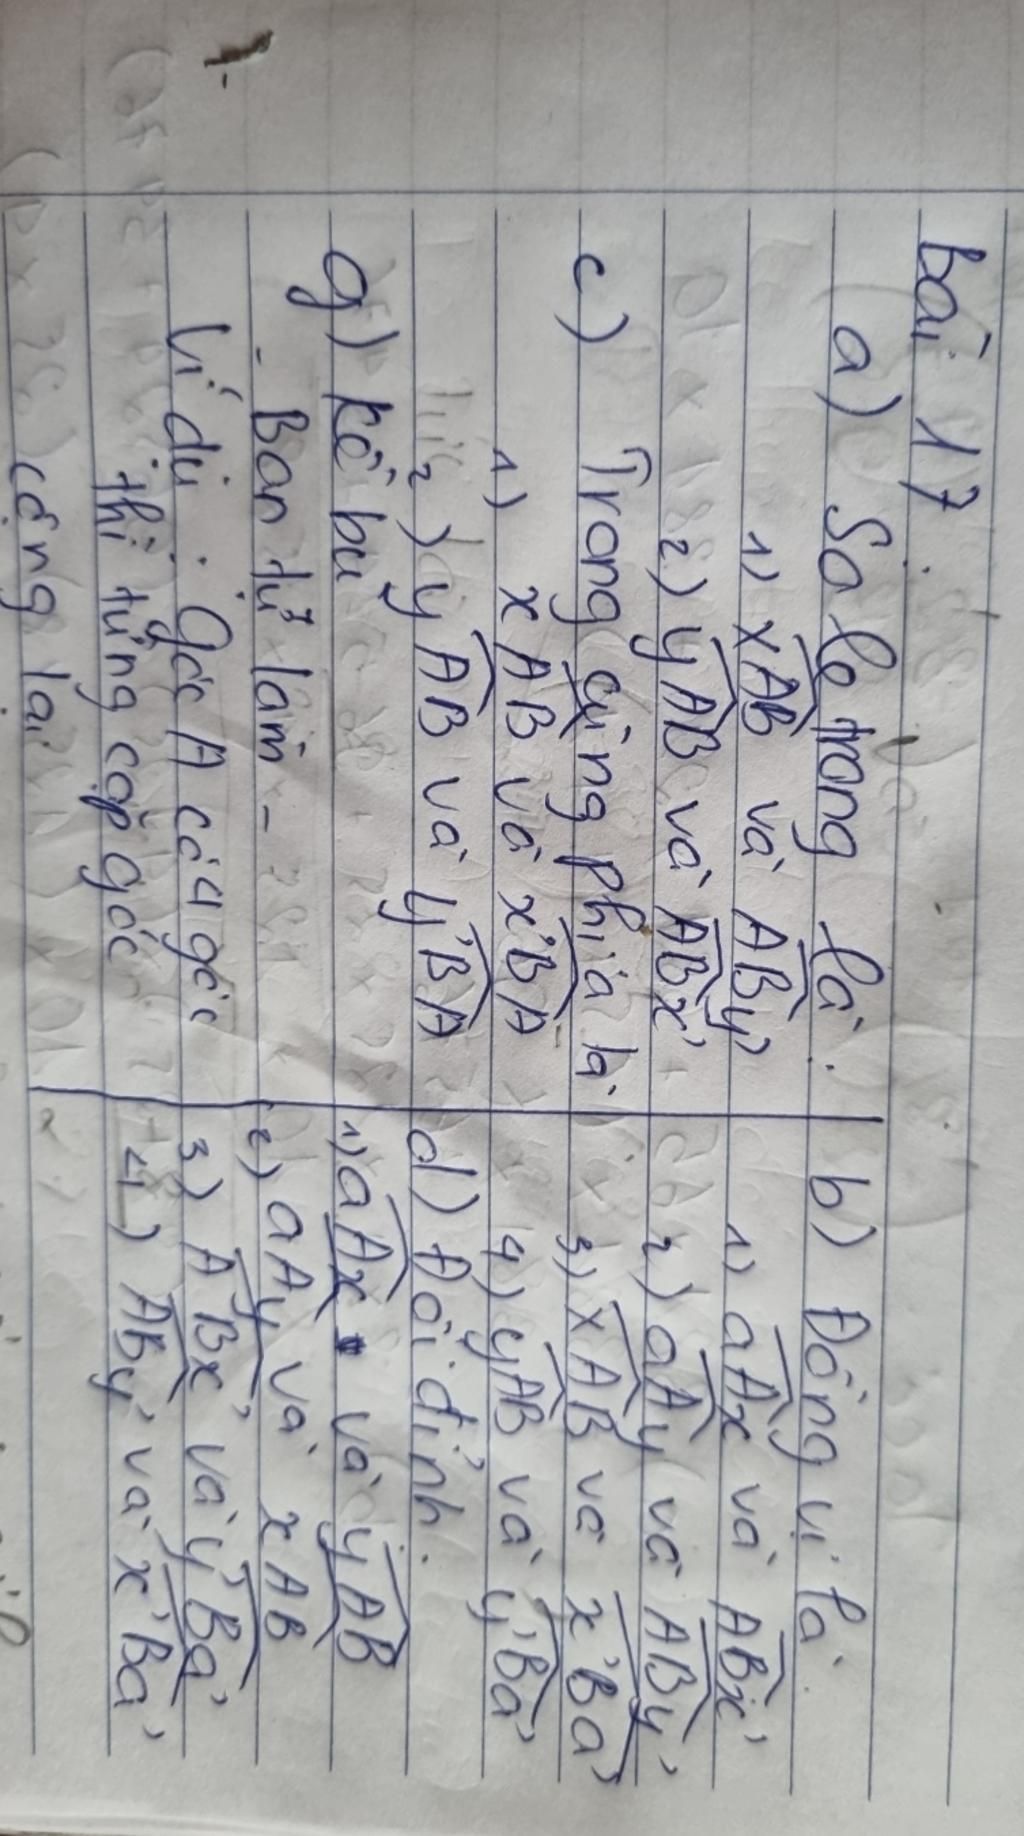 bài 17
a) So le trong là:
1) xAB và ABy'
2) yAB và ABx'
c) Trong cùng phía là
1) xAB và x'BA
2) yAB và y'BA
g) kề bù
- Bạn tự làm -
Ví dụ: Góc A có 4 góc
thì từng cặp góc
cộng lại
b) Đồng vị là.
1) aAx và ABx'
2) aAy và ABy'
3) xAB và x'Ba'
4) yAB và y'Ba'
d) Đối đỉnh.
1) aAx và yAB
2) aAy và xAB
3) ABx' và y'Ba'
4) ABy' và x'Ba'